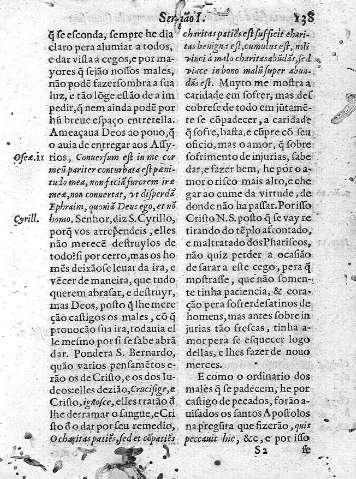 Sermão I. 138
q̃ se esconda, sempre he dia
claro pera alumiar a todos,
e dar vista a cegos, e por ma-
yores q̃ sejão nossos males,
não podẽ fazer sombra a sua
luz, e tão lõge estão de a im
pedir, q̃ nem ainda podẽ por
hũ breve espaço entretella.
Ameaçava Deos ao povo, q̃
o avia de entregar aos Assy-
Oseæ. 11
rios, Conversum est in me cor
meũ pariter conturbata est pæni-
tudo mea, non faciã furorem iræ
meæ, non convertar, vt disperdã
Ephraim, quoniã Deus ego, et nõ
Cyrill.
homo, Senhor, diz S. Cyrillo,
porq̃ vos arrepẽdeis, elles
não merecẽ destruylos de
todo? si por certo, mas os ho
mẽs deixãose levar da ira, e
vẽcer de maneira, que tudo
querem abrasar, e destruyr,
mas Deos, posto q̃ lhe mere
ção castigos os males, cõ q̃
provocão sua ira, todavia el
le mesmo por si se sabe abrã
dar. Pondera S. Bernardo,
quão varios pensamẽtos e-
rão os de Christo, e os dos Iu
deos: elles dezião, Crucifige, e
Cristo, ignosce, elles tratão d̃
lhe derramar o sangue, e Cris
to d̃ o dar por seu remedio,
O charitas patiẽs, sed et cõpatiẽs
charitas patiẽs est sufficit chari-
tas benigna est, cumulus est, noli
vinci à malo charitas abũdãs, sed
vince in bono malũ super abun-
dãs est. Muyto me mostra a
caridade em sofrer, mas des
cobrese de todo em jũtamẽ-
te se cõpadecer, a caridade
q̃ sofre, basta, e cũpre cõ seu
officio, mas o amor, q̃ sobre
sofrimento de injurias, sabe
dar, e fazer bem, he por o a-
mor o risco mais alto, e che
gar ao cume da virtude, de
donde não ha passar. Por isso
Cristo N. S. posto q̃ se vay re
tirando do tẽplo afrontado,
e maltratado dos Phariseos,
não quiz perder a ocasião
de sarar a este cego, pera q̃
mostrasse, que não somen-
te tinha paciencia, & cora-
ção pera sofrer desatinos de
homens, mas antes sobre in
jurias tão frescas, tinha a-
mor pera se esquecer logo
dellas, e lhes fazer de novo
merces.
E como o ordinario dos
males q̃ se padecem, he por
castigo de pecados, forão a-
visados os santos Apostolos
na pregũta que fizerão, quis
peccavit hic, &c, e por isso
S2 se